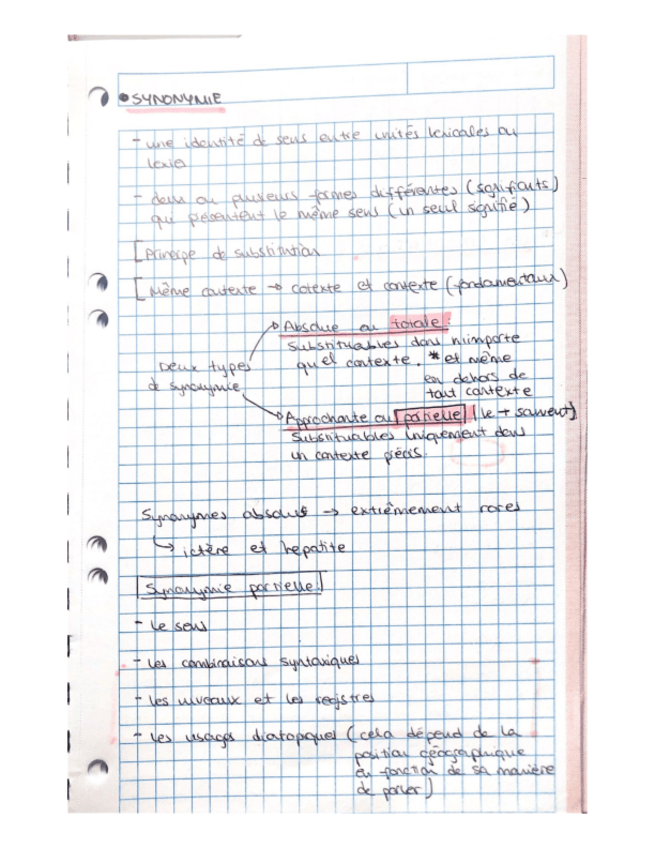 • SYNONYMIE
- une identité de sens entre unités lexicales ou
lexies
- deux ou plusieurs formes différentes (signifiants)
qui présentent le même sens (un seul signifié)
[Principe de substitution
[Même contexte → cotexte et contexte (fondamentaux)
Deux types
de synonymie
Absolue ou totale:
Substituables dans n'importe
quel contexte. * et même
en dehors de
tout contexte
Approchante ou partielle (le + souvent)
Substituables uniquement dans
un contexte précis.
Synonymes absolus → extrêmement rares
↳ ictère et hepatite
Synonymie partielle:
- le sens
- les combinaisons syntaxiques
- les niveaux et les registres
- les usages diatopiques (cela dépend de la
position géographique
en fonction de sa manière
de parler)